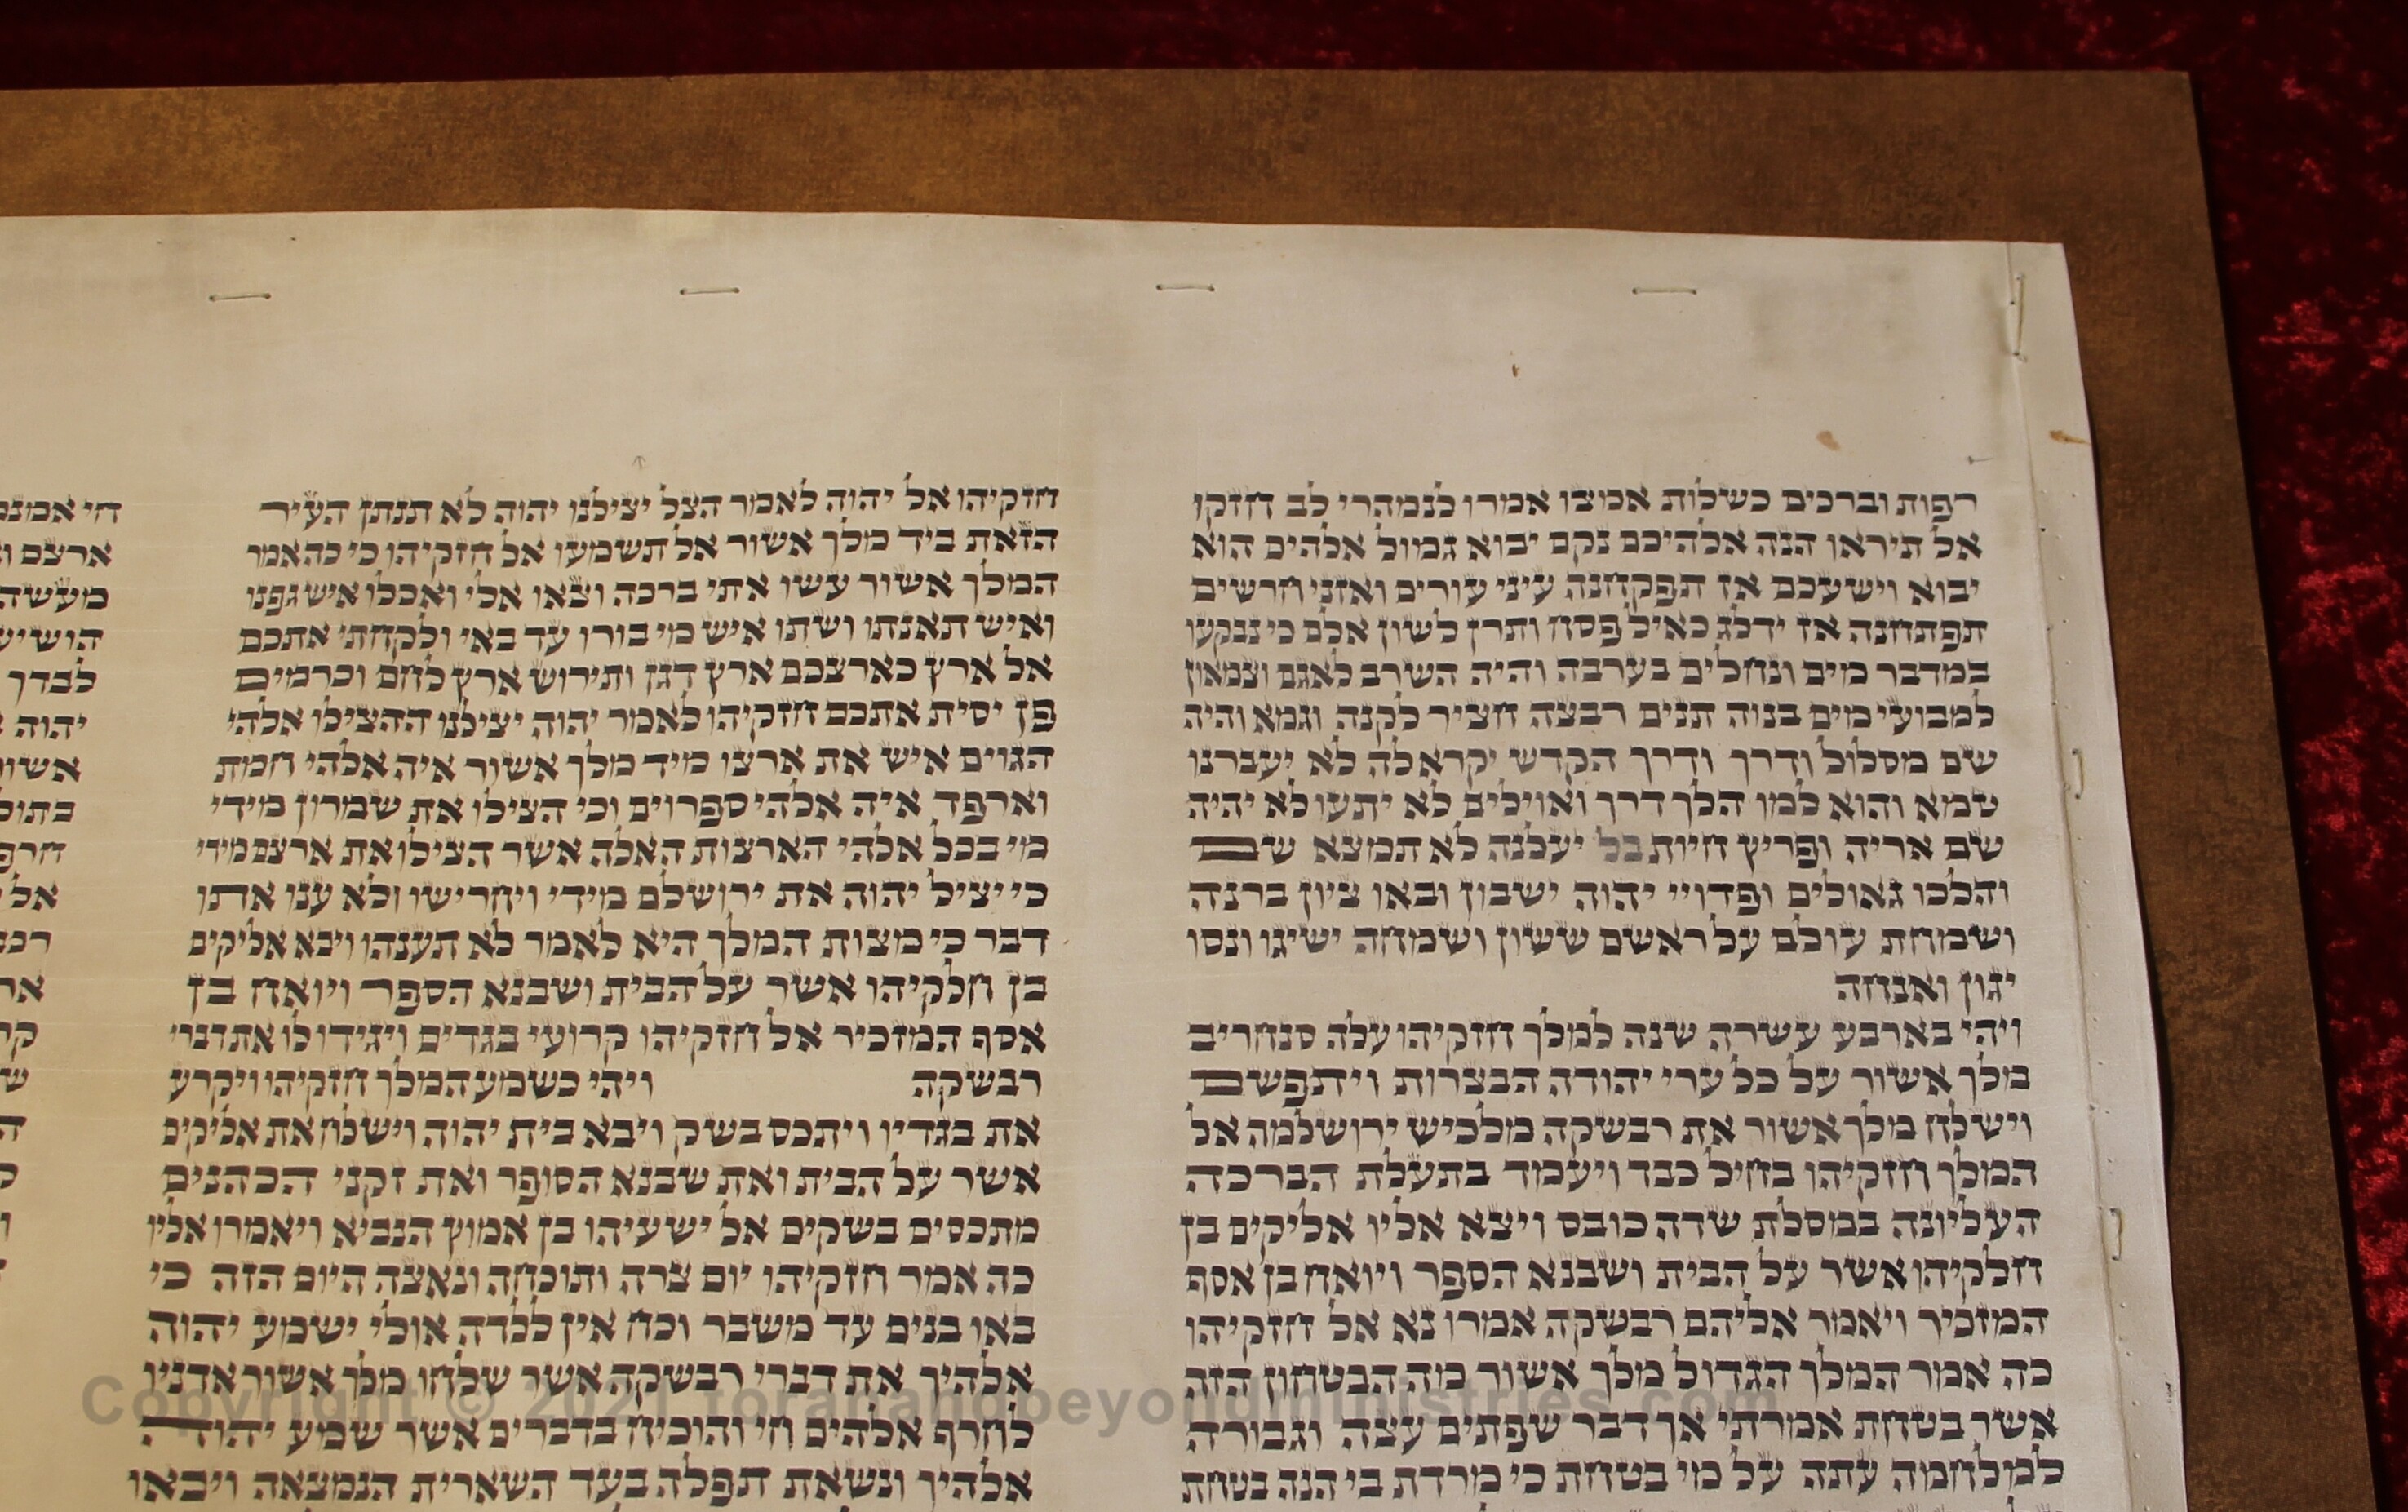 רפות וברכים כשלות אמצו אמרו לנמהרי לב חזקו
אל תיראו הנה אלהיכם נקם יבוא גמול אלהים הוא
יבוא וישעכם אז תפקחנה עיני עורים ואזני חרשים
תפתחנה אז ידלג כאיל פסח ותרן לשון אלם כי נבקעו
במדבר מים ונחלים בערבה והיה השרב לאגם וצמאון
למבועי מים בנוה תנים רבצה חציר לקנה וגמא והיה
שם מסלול ודרך ודרך הקדש יקרא לה לא יעברנו
טמא והוא למו הלך דרך ואוילים לא יתעו לא יהיה
שם אריה ופריץ חיות בל יעלנה לא תמצא שם
והלכו גאולים ופדויי יהוה ישבון ובאו ציון ברנה
ושמחת עולם על ראשם ששון ושמחה ישיגו ונסו
יגון ואנחה
ויהי בארבע עשרה שנה למלך חזקיהו עלה סנחריב
מלך אשור על כל ערי יהודה הבצרות ויתפשם
וישלח מלך אשור את רבשקה מלכיש ירושלמה אל
המלך חזקיהו בחיל כבד ויעמד בתעלת הברכה
העליונה במסלת שדה כובס ויצא אליו אליקים בן
חלקיהו אשר על הבית ושבנא הספר ויואח בן אסף
המזכיר ויאמר אליהם רבשקה אמרו נא אל חזקיהו
כה אמר המלך הגדול מלך אשור מה הבטחון הזה
אשר בטחת אמרתי אך דבר שפתים עצה וגבורה
למלחמה עתה על מי בטחת כי מרדת בי הנה בטחת
חזקיהו אל יהוה לאמר הצל יצילנו יהוה לא תנתן העיר
הזאת ביד מלך אשור אל תשמעו אל חזקיהו כי כה אמר
המלך אשור עשו אתי ברכה וצאו אלי ואכלו איש גפנו
ואיש תאנתו ושתו איש מי בורו עד באי ולקחתי אתכם
אל ארץ כארצכם ארץ דגן ותירוש ארץ לחם וכרמים
פן יסית אתכם חזקיהו לאמר יהוה יצילנו ההצילו אלהי
הגוים איש את ארצו מיד מלך אשור איה אלהי חמת
וארפד איה אלהי ספרוים וכי הצילו את שמרון מידי
מי בכל אלהי הארצות האלה אשר הצילו את ארצם מידי
כי יציל יהוה את ירושלם מידי ויחרישו ולא ענו אתו
דבר כי מצות המלך היא לאמר לא תענהו ויבא אליקים
בן חלקיהו אשר על הבית ושבנא הספר ויואח בן
אסף המזכיר אל חזקיהו קרועי בגדים ויגידו לו את דברי
רבשקה ויהי כשמע המלך חזקיהו ויקרע
את בגדיו ויתכס בשק ויבא בית יהוה וישלח את אליקים
אשר על הבית ואת שבנא הסופר ואת זקני הכהנים
מתכסים בשקים אל ישעיהו בן אמוץ הנביא ויאמרו אליו
כה אמר חזקיהו יום צרה ותוכחה ונאצה היום הזה כי
באו בנים עד משבר וכח אין ללדה אולי ישמע יהוה
אלהיך את דברי רבשקה אשר שלחו מלך אשור אדניו
לחרף אלהים חי והוכיח בדברים אשר שמע יהוה
אלהיך ונשאת תפלה בעד השארית הנמצאה ויבאו
חי
ארצם
מעשה
לבדך
יהוה
אל
Copyright © 2021 torahandbeyondministries.com